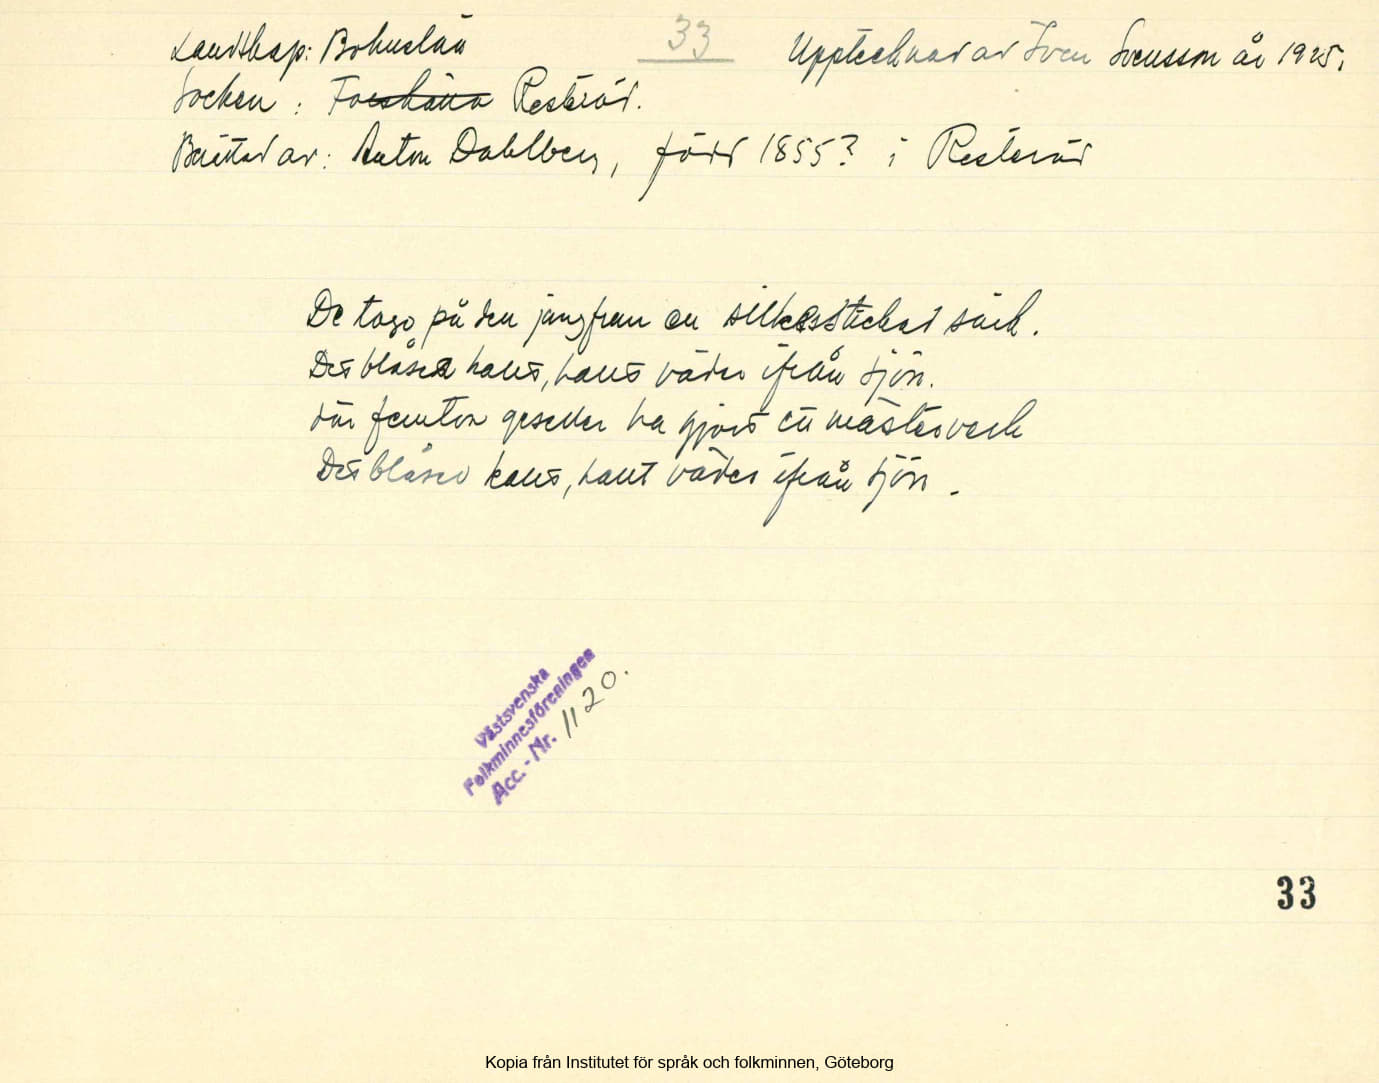 33
Landskap: Bohuslän Upptecknad av Sven Svensson år 1925.
Socken: Foss härna Resteröd.
Berättad av: Anton Dahlberg, född 1855? i Resteröd
De togo på den jungfrun en silkesstickad särk.
Det blåser kallt, kallt väder ifrån sjön.
där femton geseller ha gjort ett mästerverk
Det blåser kallt, kallt väder ifrån sjön.
Västsvenska
Folkminnesföreningen
Acc.-Nr. 1120.
33
Kopia från Institutet för språk och folkminnen, Göteborg